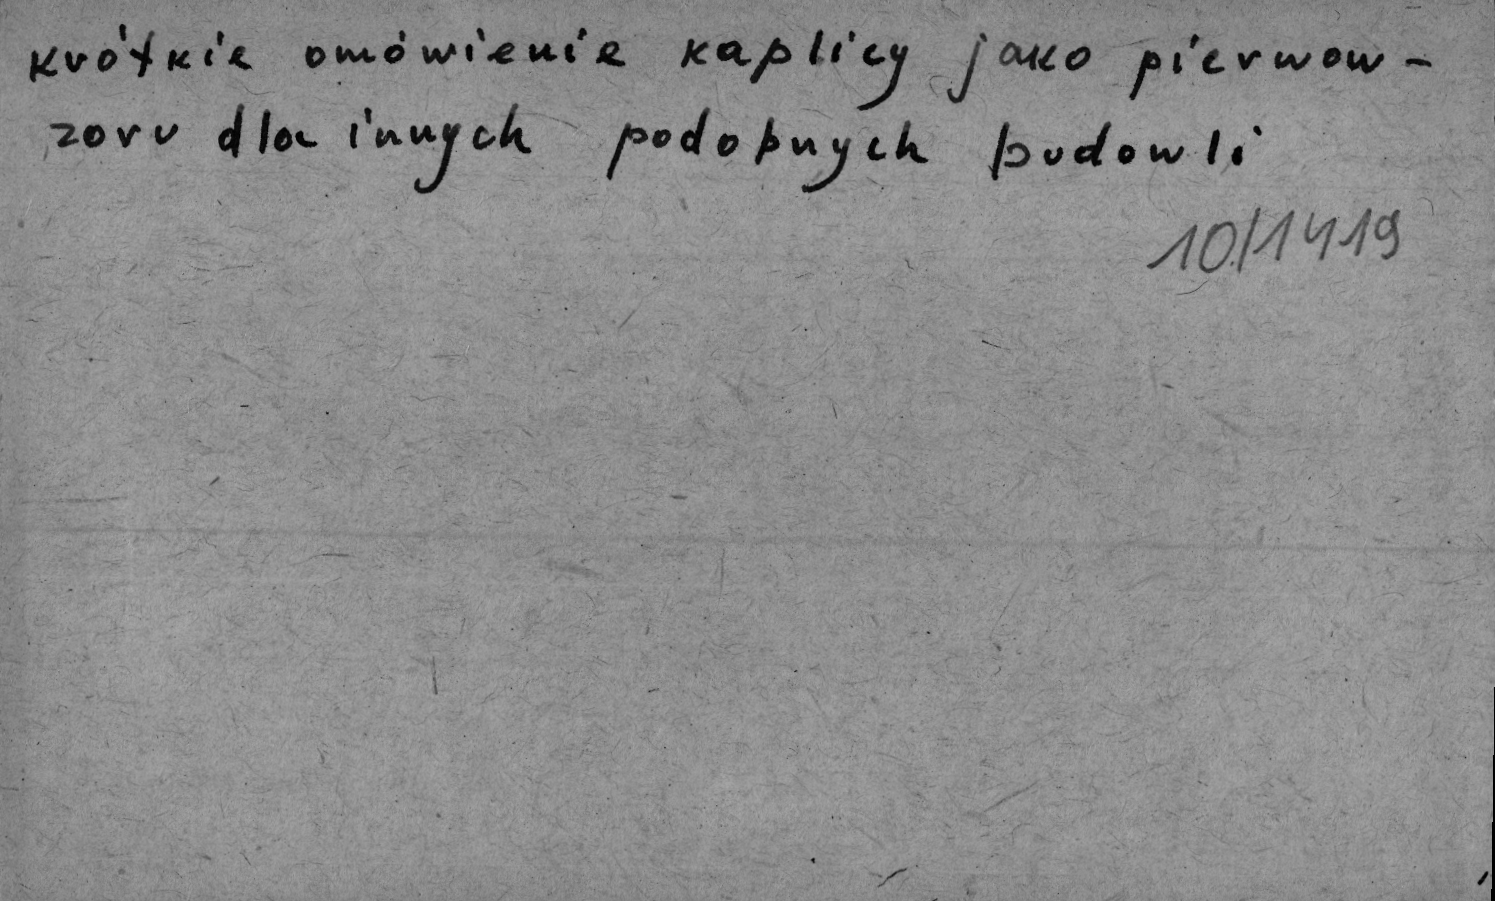 krótkie omówienie kaplicy jako pierwow-
zoru dla innych podobnych budowli
10/1419